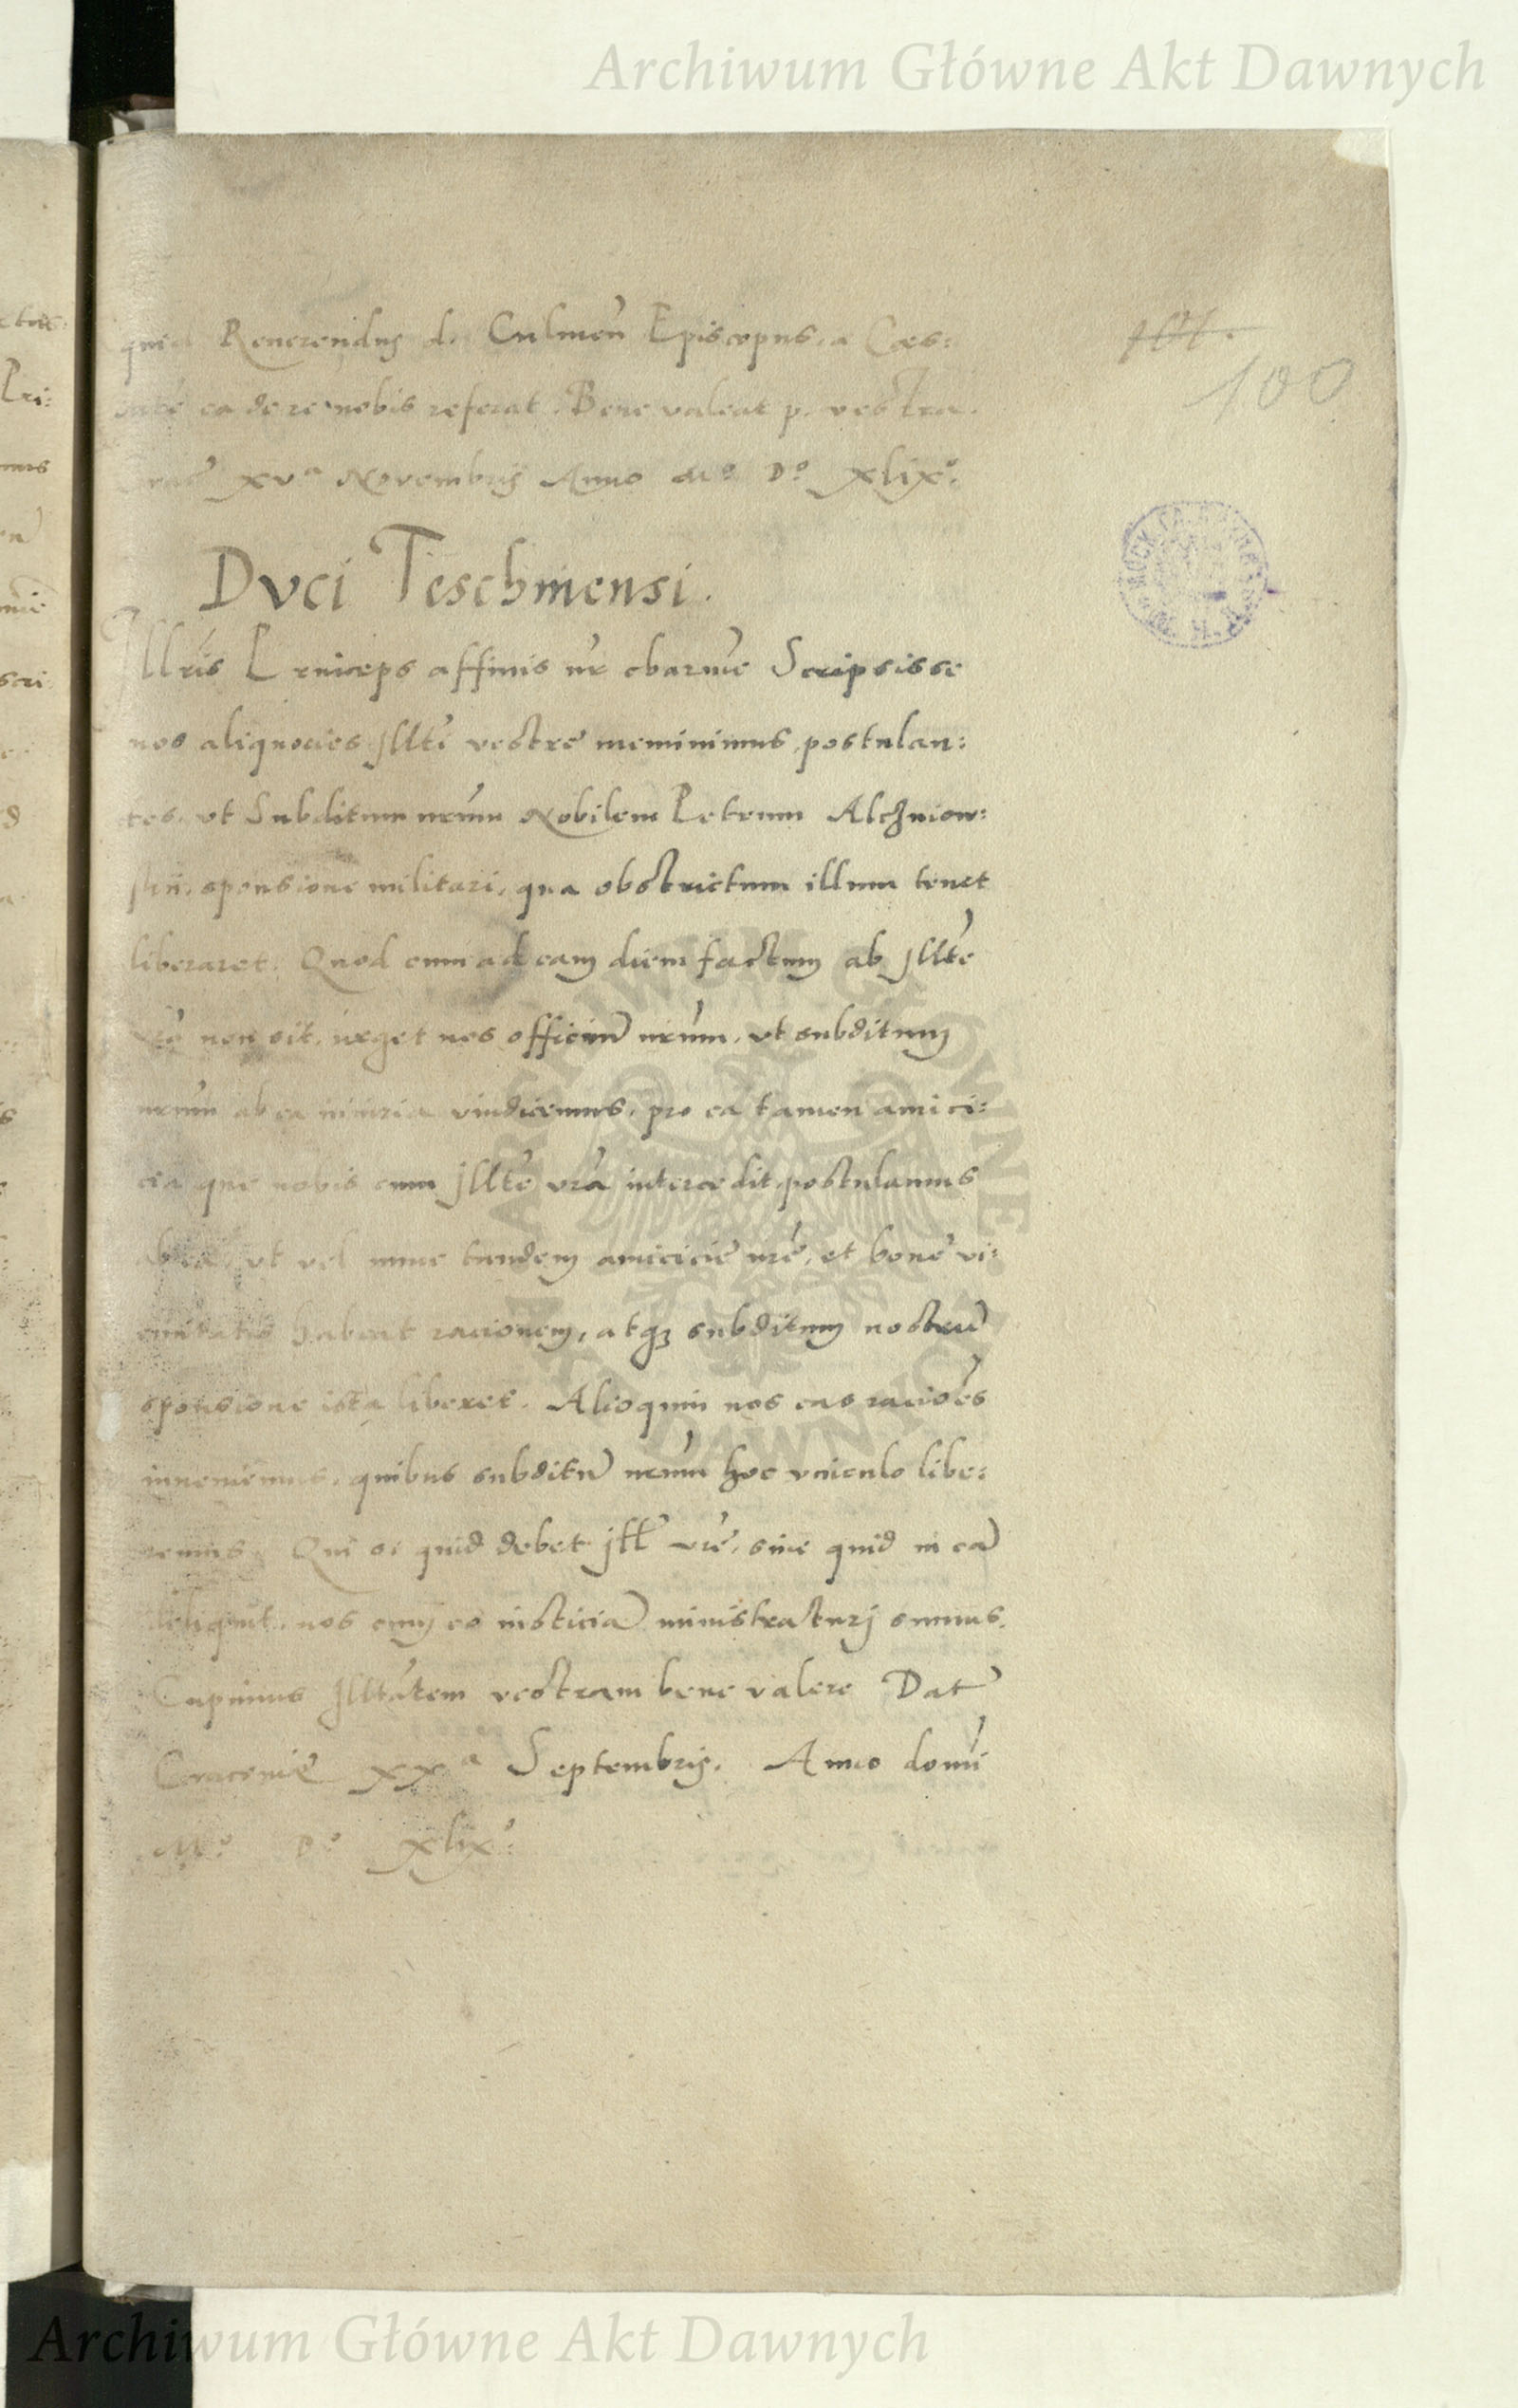 Archiwum Główne Akt Dawnych
101.
100
quid Reverendus d. Culmeñ Episcopus a Caes:
ea de re nobis referat. Bene valeat p. vestra.
xva Novembris Anno Mo Do xlixo.
Dvci Teschinensi.
Illris Princeps affinis nr charme Scripsisse
nos aliquocies Illti vestrę meminimus, postulan:
tes, ut Subditum nrum Nobilem Petrum Alchniow:
skij, sponsione militari, qua obstrictum illum tenet
liberaret. Quod cum ad eam diem factum ab Illte
vra non sit, urget nos officiū nrum, ut subditum
nrum ab ea iniuria vindicemus, pro ea tamen amici:
cia que nobis cum Illte vra intercedit, postulamus
ut vel nunc tandem amicicię nrę, et bonę vi:
cinitatis habeat racionem, atq3 subditum nostrū
sponsione ista liberet. Alioquin nos eas racioēs
inveniemus, quibus subditū nrum hoc vinculo libe:
remus. Qui si quid debet Ill vrę, sive quid in eā
deliquit, nos cum eo iusticiā ministraturj sumus.
Cupimus Illtatem vestram bene valere Dat
Cracovię xxa Septembris. Anno domi
Mo Do xlixo.
ARCHIWUM GŁÓWNE AKT DAWNYCH
Archiwum Główne Akt Dawnych